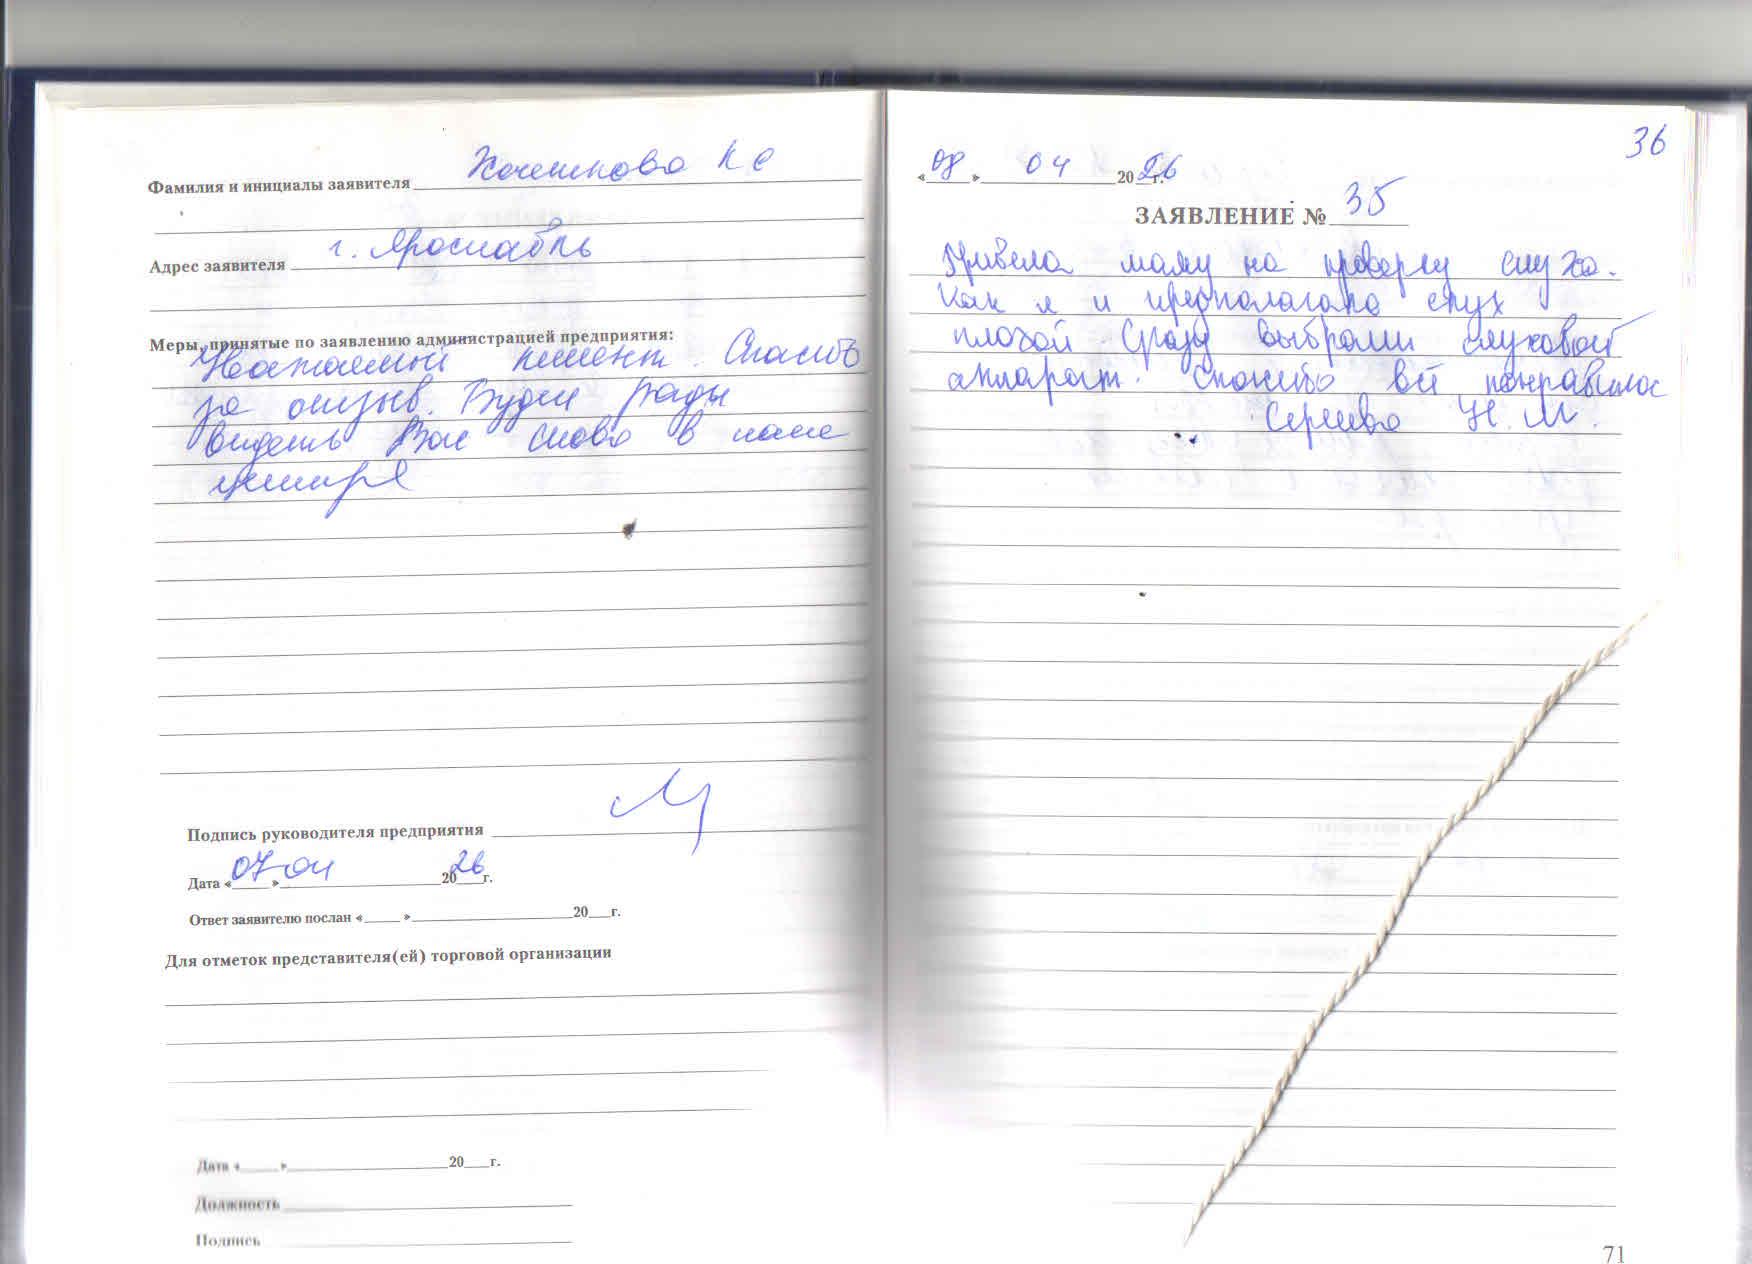 Фамилия и инициалы заявителя К С
Адрес заявителя г. Ярославль
Меры, принятые по заявлению администрацией предприятия:
Уважаемый клиент. Спасибо
за отзыв. Будем рады
видеть Вас снова в наше
центре
Подпись руководителя предприятия
Дата «07» 04 2026 г.
Ответ заявителю послан «___» ___ 20__г.
Для отметок представителя(ей) торговой организации
Дата «___» ___ 20__г.
Должность
Подпись
36
«08» 04 2026 г.
ЗАЯВЛЕНИЕ № 35
Привела маму на проверку слуха.
Как я и предполагала слух
плохой. Сразу выбрали слуховой
аппарат. Спасибо всё понравилос
Н. М.
71